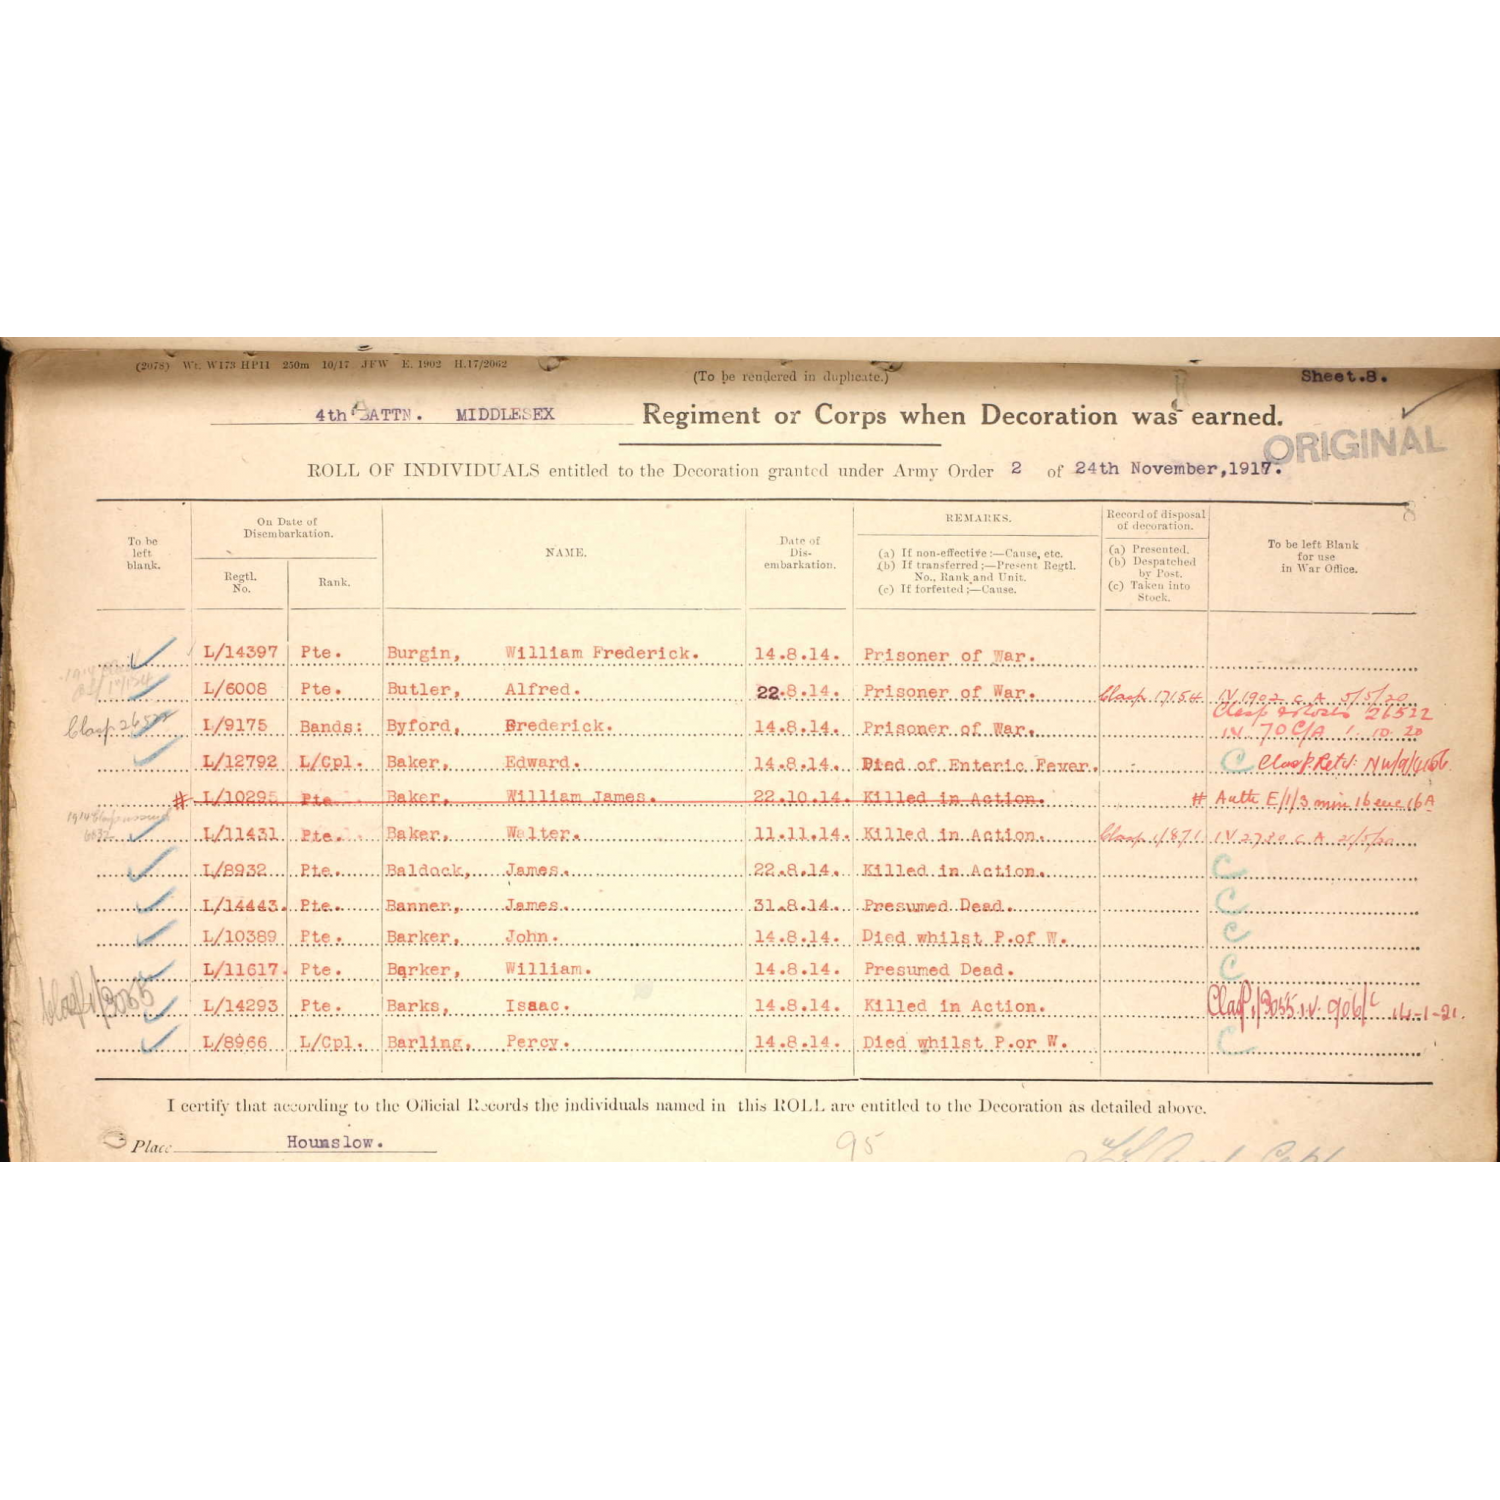 (2078) Wt. W173 HP11 250m 10/17 JFW E. 1902 H.17/2062
(To be rendered in duplicate.)
Sheet.8.
4th BATTN. MIDDLESEX Regiment or Corps when Decoration was earned.
ORIGINAL
ROLL OF INDIVIDUALS entitled to the Decoration granted under Army Order 2 of 24th November,1917.
8
To be left blank.
On Date of Disembarkation.
Regtl. No.
Rank.
NAME.
Date of Dis-embarkation.
REMARKS.
(a) If non-effective:—Cause, etc.
(b) If transferred;—Present Regtl. No., Rank and Unit.
(c) If forfeited;—Cause.
Record of disposal of decoration.
(a) Presented.
(b) Despatched by Post.
(c) Taken into Stock.
To be left Blank for use in War Office.
L/14397 Pte. Burgin, William Frederick. 14.8.14. Prisoner of War.
L/6008 Pte. Butler, Alfred. 22.8.14. Prisoner of War. Clasp 17154 IV 1902 C A 5/5/20
Clasp 26522 L/9175 Bands: Byford, Frederick. 14.8.14. Prisoner of War. Clasp & Roses 26522
IV. 70 C/A 1.10.20
L/12792 L/Cpl. Baker, Edward. 14.8.14. Died of Enteric Fever. C Clasp Retd:
# L/10295 Pte. Baker, William James. 22.10.14. Killed in Action. # Auth E/1/3 min 16 enc 16A
L/11431 Pte. Baker, Walter. 11.11.14. Killed in Action. Clasp 1/871 IV 2730 C A 21/5/20
L/8932 Pte. Baldock, James. 22.8.14. Killed in Action. C
L/14443. Pte. Banner, James. 31.8.14. Presumed Dead. C
L/10389 Pte. Barker, John. 14.8.14. Died whilst P.of W. C
L/11617. Pte. Barker, William. 14.8.14. Presumed Dead. C
Clasp 1/3055 L/14293 Pte. Barks, Isaac. 14.8.14. Killed in Action. Clasp 1/3055 IV. 906/C 14-1-21.
L/8966 L/Cpl. Barling, Percy. 14.8.14. Died whilst P.or W. C
I certify that according to the Official Records the individuals named in this ROLL are entitled to the Decoration as detailed above.
Place Hounslow.
95